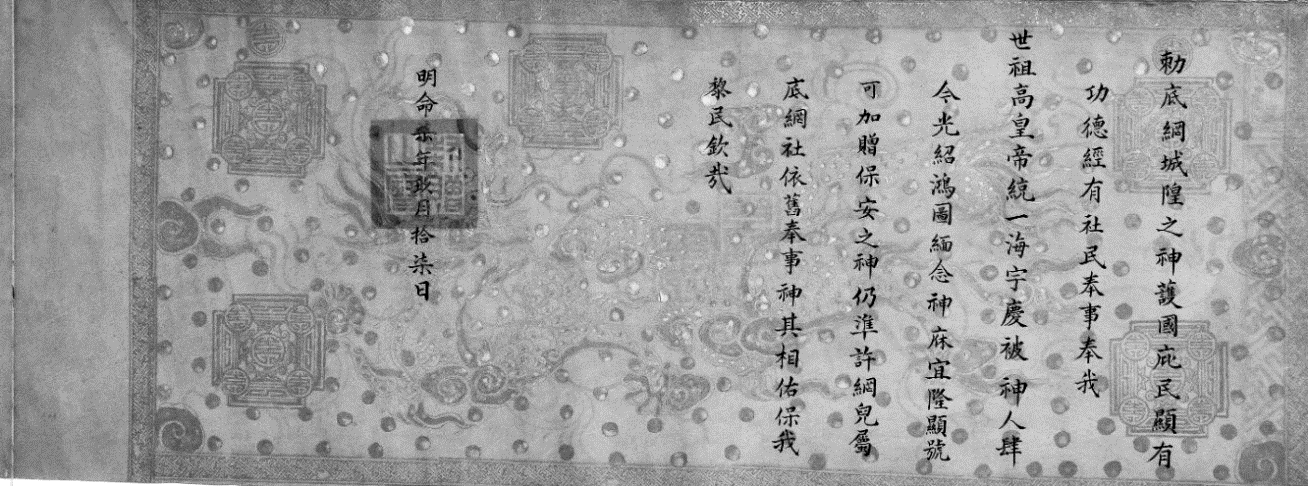 勅底網城隍之神護國庇民顯有
功德經有社民奉事奉我
世祖高皇帝統一海宇慶被神人肆
今光紹鴻圖緬念神庥宜隆顯號
可加贈保安之神仍準許網兒屬
底網社依舊奉事神其相佑保我
黎民欽哉
明命叁年玖月拾柒日